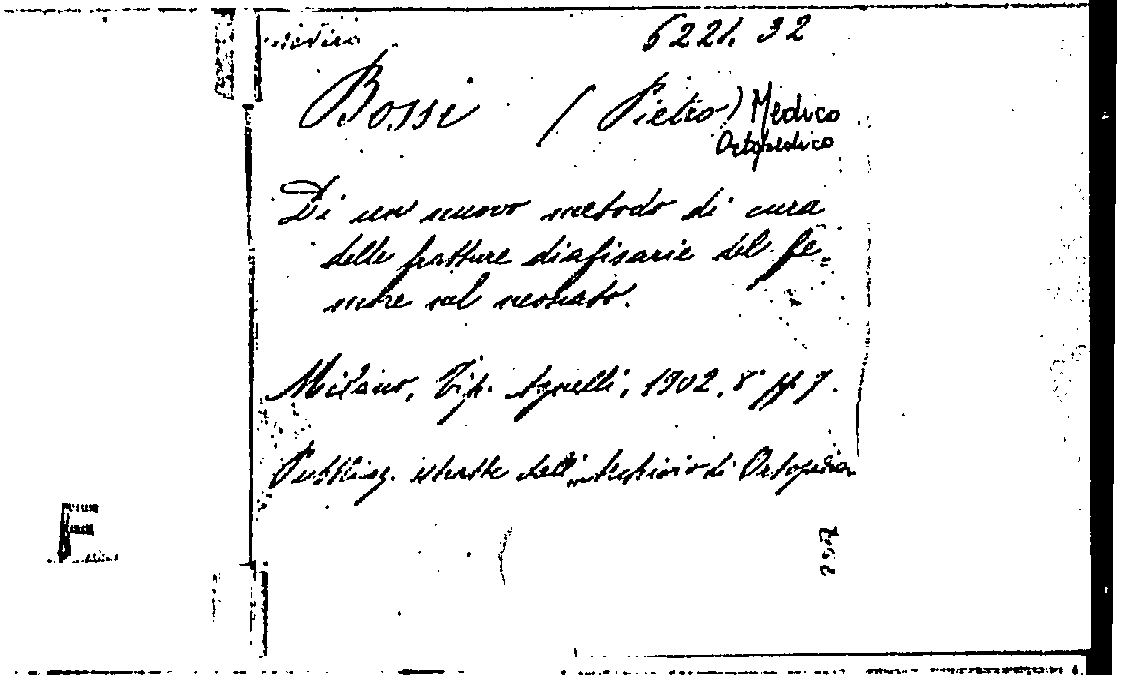 6221. 32
Bossi (Pietro) Medico
Ortopedico
Di un nuovo metodo di cura
delle fratture diafisarie del fe=
more nel neonato.
Milano, Tip. Agnelli, 1902, 8° pp 7.
Pubblicaz. estratta dall' Archivio di Ortopedia
F